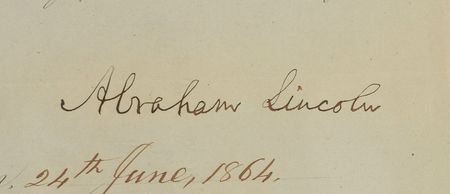 Abraham Lincoln
24th June, 1864.